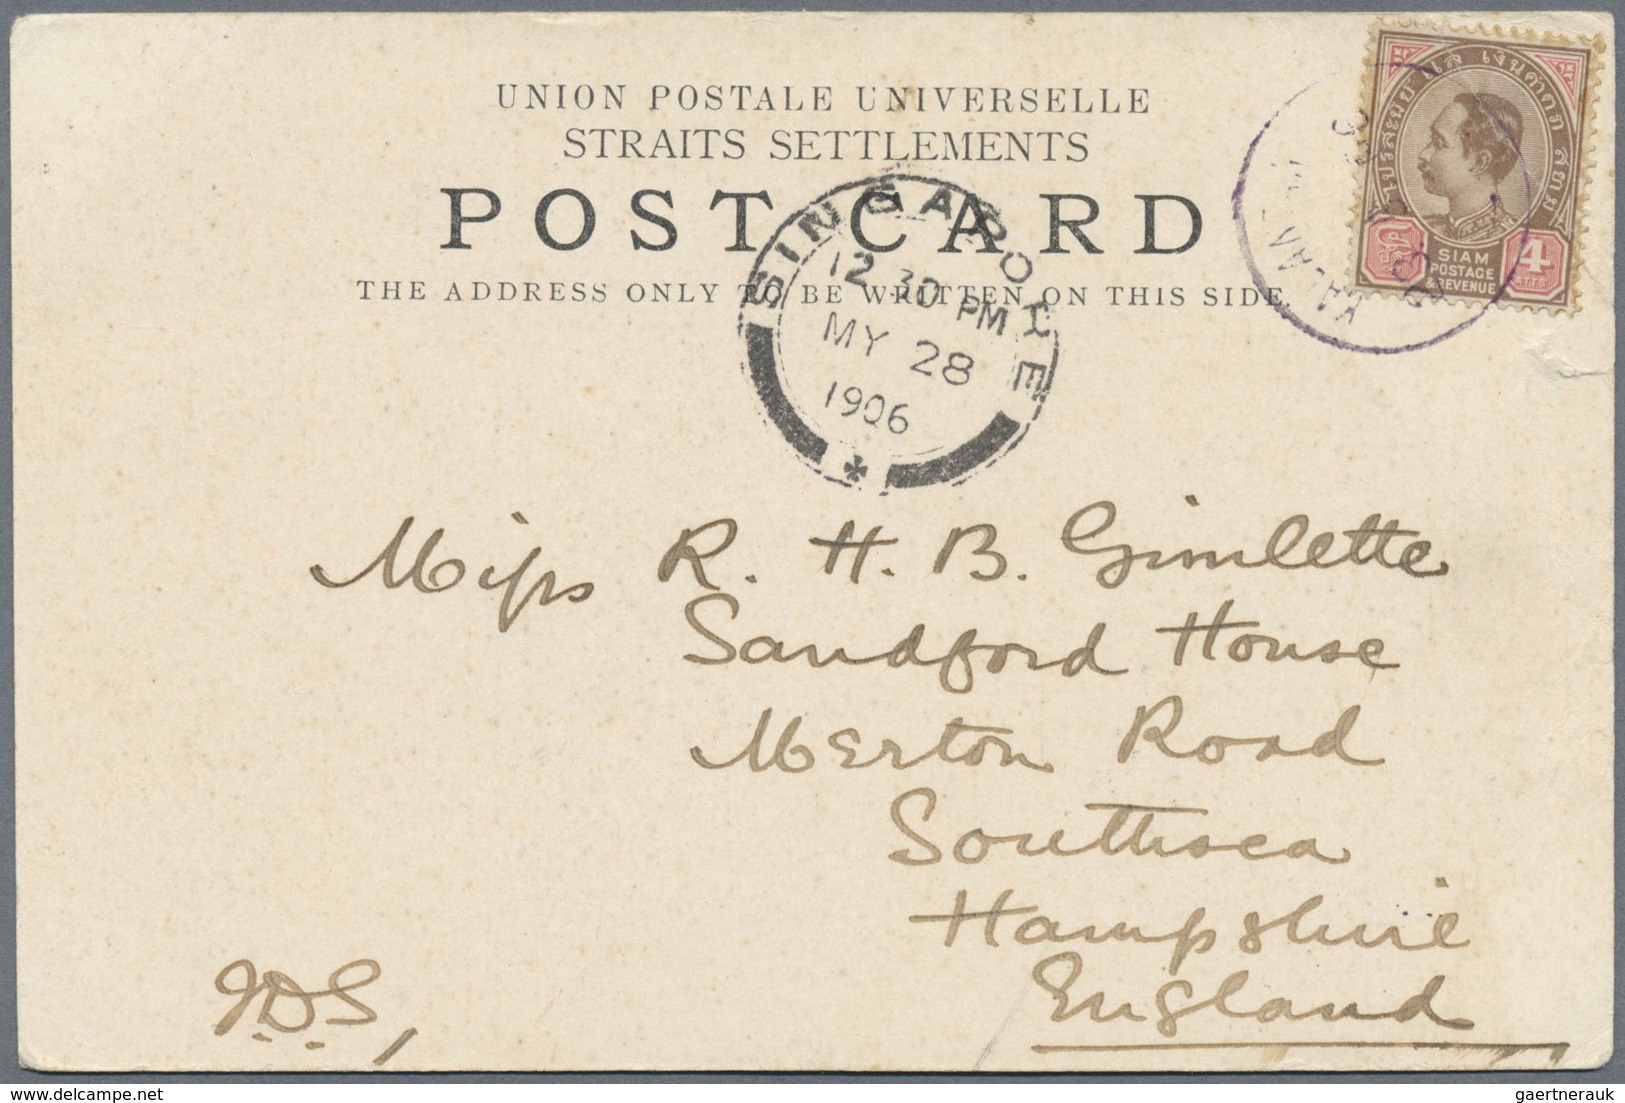 UNION POSTALE UNIVERSELLE
STRAITS SETTLEMENTS
POST CARD
THE ADDRESS ONLY TO BE WRITTEN ON THIS SIDE.
SINGAPORE
12.30 PM
MY 28
1906
SIAM
POSTAGE
& REVENUE
4
ATTS
Miss R. H. B. Gimlette
Sandford House
Merton Road
Southsea
Hampshire
England
gaertnerauk